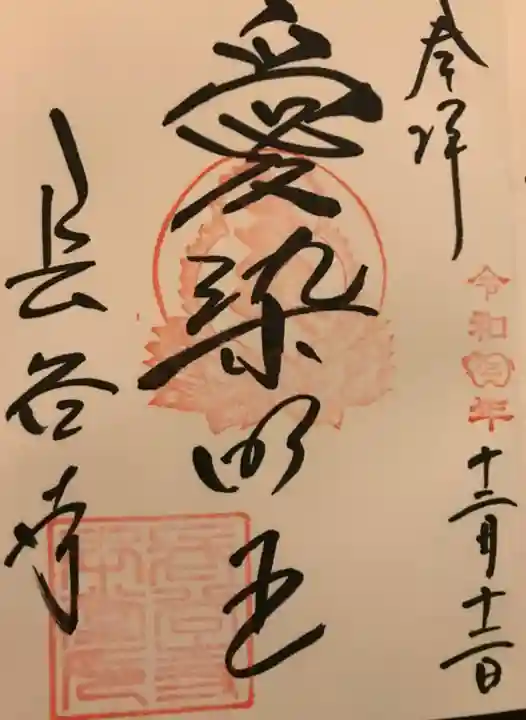 奉拝
令和四年
十二月十二日
愛染明王
長谷寺